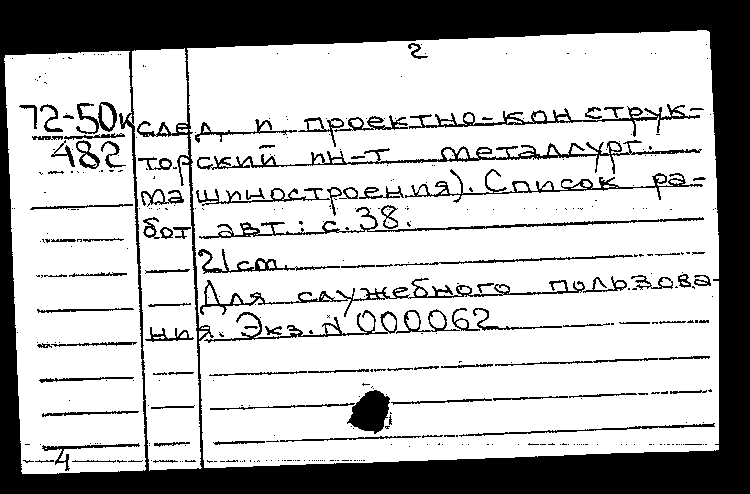 2
72-50к след. и проектно-конструк-
482 торский ин-т металлург.
машиностроения). Список ра-
бот авт.: с. 38.
21 cm.
Для служебного пользова-
ния. Экз. N 000062
4